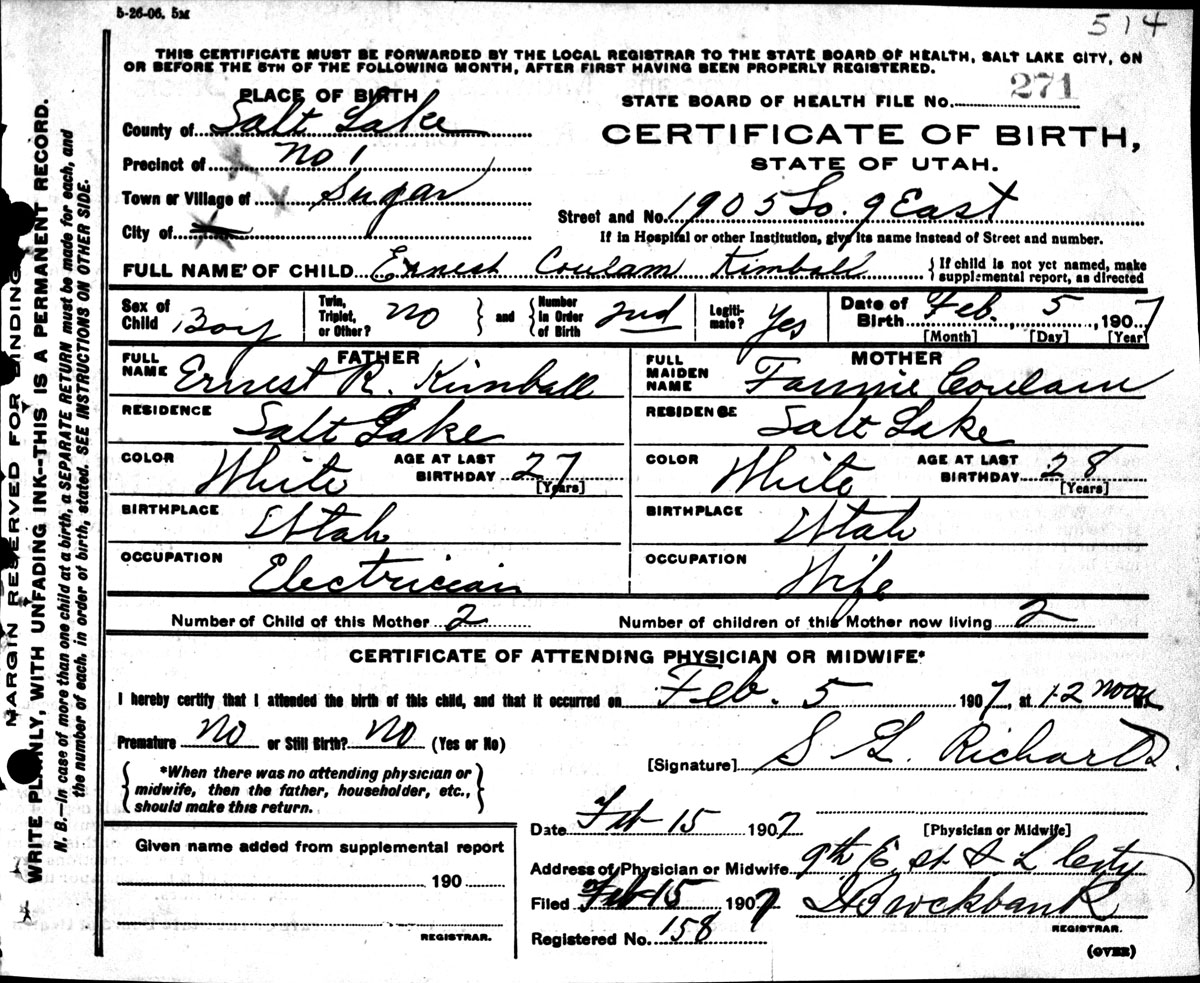 5-26-06. 5M
514
THIS CERTIFICATE MUST BE FORWARDED BY THE LOCAL REGISTRAR TO THE STATE BOARD OF HEALTH, SALT LAKE CITY, ON
OR BEFORE THE 5TH OF THE FOLLOWING MONTH, AFTER FIRST HAVING BEEN PROPERLY REGISTERED.
PLACE OF BIRTH
STATE BOARD OF HEALTH FILE No. 271
County of Salt Lake
CERTIFICATE OF BIRTH,
Precinct of No 1
STATE OF UTAH.
Town or Village of Sugar
Street and No. 1905 So. 9 East
City of
If in Hospital or other Institution, give its name instead of Street and number.
FULL NAME OF CHILD Ernest Coulam Kimball
{ If child is not yet named, make
supplemental report, as directed
Sex of Child Boy
Twin, Triplet, or Other? No
} and { Number in Order of Birth 2nd
Legiti-mate? Yes
Date of Birth Feb. 5, 1907
[Month] [Day] [Year]
FATHER
FULL NAME Ernest R. Kimball
MOTHER
FULL MAIDEN NAME Fannie Coulam
RESIDENCE Salt Lake
RESIDENCE Salt Lake
COLOR White AGE AT LAST BIRTHDAY 27 [Years]
COLOR White AGE AT LAST BIRTHDAY 28 [Years]
BIRTHPLACE Utah
BIRTHPLACE Utah
OCCUPATION Electrician
OCCUPATION Wife
Number of Child of this Mother 2
Number of children of this Mother now living 2
CERTIFICATE OF ATTENDING PHYSICIAN OR MIDWIFE*
I hereby certify that I attended the birth of this child, and that it occurred on Feb. 5 1907, at 12 noon M.
Premature No or Still Birth? No (Yes or No)
[Signature] S L. Richards.
{ *When there was no attending physician or
midwife, then the father, householder, etc.,
should make this return. }
Date Feb 15 1907
[Physician or Midwife]
Given name added from supplemental report
190
REGISTRAR.
Address of Physician or Midwife 9th E. st. S L City
Filed Feb 15 1907 Brockbank
REGISTRAR.
Registered No. 158
(OVER)
MARGIN RESERVED FOR BINDING
WRITE PLAINLY, WITH UNFADING INK--THIS IS A PERMANENT RECORD.
N. B.—In case of more than one child at a birth, a SEPARATE RETURN must be made for each, and
the number of each, in order of birth, stated. SEE INSTRUCTIONS ON OTHER SIDE.